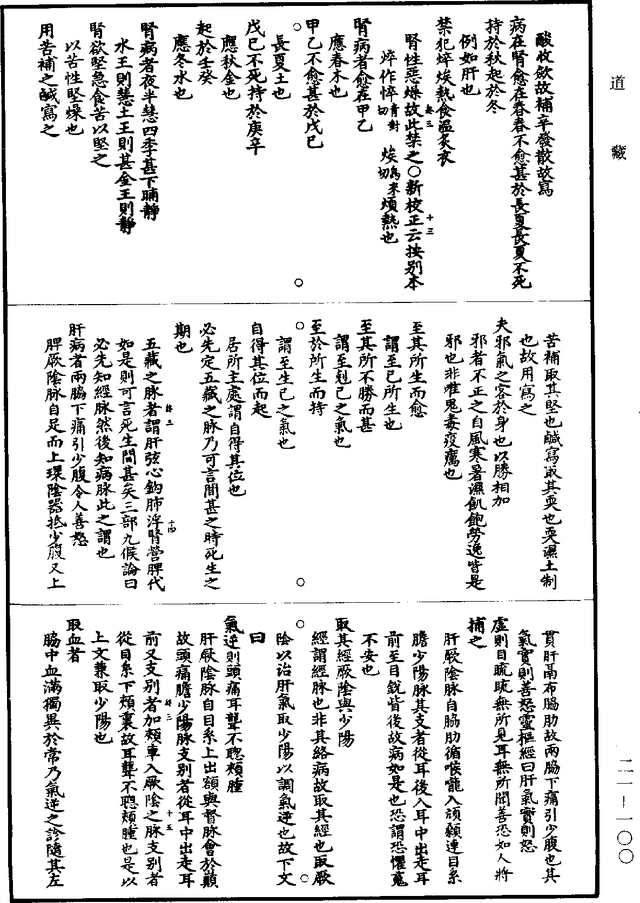 道藏
酸收斂故補辛發散故寫
病在腎愈在春春不愈甚於長夏長夏不死
持於秋起於冬
例如肝也
禁犯焠㶼熱食溫炙衣
腎性惡燥故此禁之○新校正云按別本
焠作悴青對切㶼烏來切煩熱也
腎病者愈在甲乙
應春木也
甲乙不愈甚於戊己
長夏土也
戊己不死持於庚辛
應秋金也
起於壬癸
應冬水也
腎病者夜半慧四季甚下晡靜
水王則慧土王則甚金王則靜
腎欲堅急食苦以堅之
以苦性堅燥也
用苦補之鹹寫之
苦補取其堅也鹹寫取其耎也耎濕土制
也故用寫之
夫邪氣之客於身也以勝相加
邪者不正之自風寒暑濕飢飽勞逸皆是
邪也非唯鬼毒疫癘也
至其所生而愈
謂至己所生也
至其所不勝而甚
謂至剋己之氣也
至於所生而持
謂至生己之氣也
自得其位而起
居所主處謂自得其位也
必先定五藏之脉乃可言間甚之時死生之
期也
五藏之脉者謂肝弦心鈎肺浮腎營脾代
如是則可言死生間甚矣三部九候論曰
必先知經脉然後知病脉此之謂也
肝病者兩脇下痛引少腹令人善怒
脾厥陰脉自足而上環陰器抵少腹又上
貫肝鬲布脇肋故兩脇下痛引少腹也其
氣實則善怒靈樞經曰肝氣實則怒
虛則目䀮䀮無所見耳無所聞善恐如人將
捕之
肝厥陰脉自脇肋循喉嚨入頏顙連目系
膽少陽脉其支者從耳後入耳中出走耳
前至目銳眥後故病如是也恐謂恐懼䰟
不安也
取其經厥陰與少陽
經謂經脉也非其絡病故取其經也取厥
陰以治肝氣取少陽以調氣逆也故下文
曰
氣逆則頭痛耳聾不聰頰腫
肝厥陰脉自目系上出額與督脉會於巔
故頭痛膽少陽脉支別者從耳中出走耳
前又支別者加頰車入厥陰之脉支別者
從目系下頰裏故耳聾不聰頰腫也是以
上文兼取少陽也
取血者
脇中血滿獨異於常乃氣逆之診隨其左
二一一一〇〇